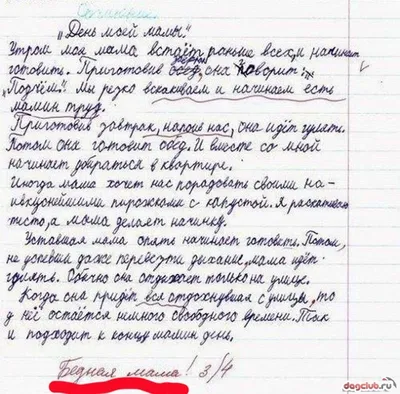 Сочинение.
„День моей мамы."
Утром моя мама встаёт раньше всех, и начинает
готовить. Приготовив завтрак обед, она говорит:
„Подъём". Мы резко вскакиваем и начинаем есть
мамин труд.
Приготовив завтрак, напоив нас, она идёт гулять.
Потом она готовит обед. И вместе со мной
начинает убираться в квартире.
Иногда мама хочет нас порадовать своими на-
ивкуснейшима пирожками с капустой. Я раскатываю
тесто, а мама делает начинку.
Уставшая мама опять начинает готовить. Потом,
не успевши даже перевезти дыхание, мама идёт
гулять. Обычно она отдыхает только на улице.
Когда она придёт вся отдохнувшая с улицы, то
у неё остаётся немного свободного времени. Так
и подходит к концу мамин день.
Бедная мама! 3/4
dogclub.ru